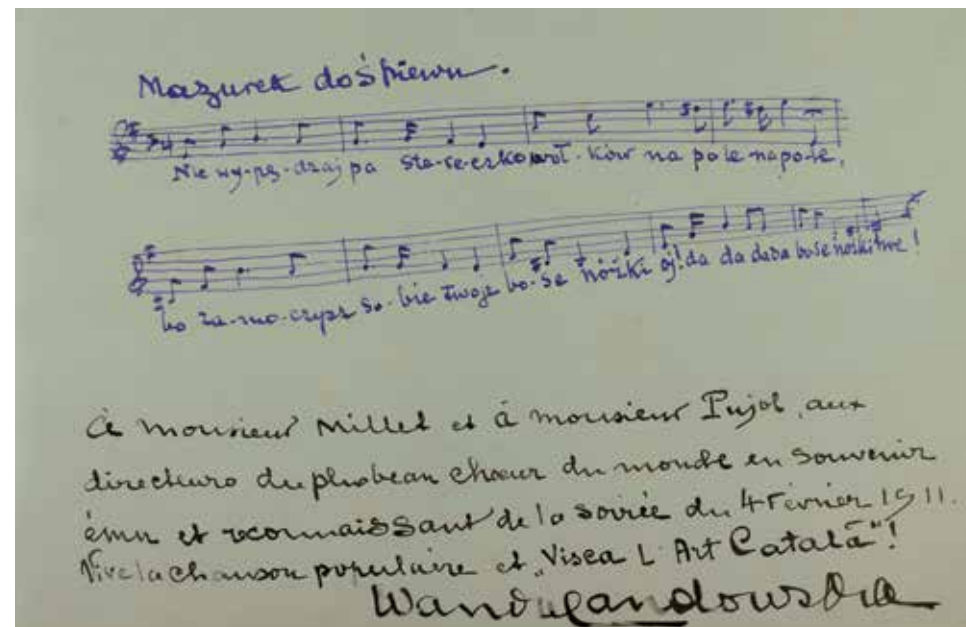 Mazurek do śpiewu.
Nie wy-pę-dzaj pa ste-re-czko woł-ków na pole na po-le,
bo za-mo-czysz so-bie twoje bo-se nóżki oj! da da dada bose nóżki twe!
à monsieur Millet et à monsieur Pujol, aux
directeurs du plus beau chœur du monde en souvenir
ému et reconnaissant de la soirée du 4 Février 1911.
Vive la chanson populaire et „Visca L'Art Català"!
Wanda Landowska